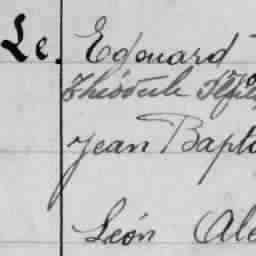 Le. Edouard
Théodule
Jean Bapt
León Ale